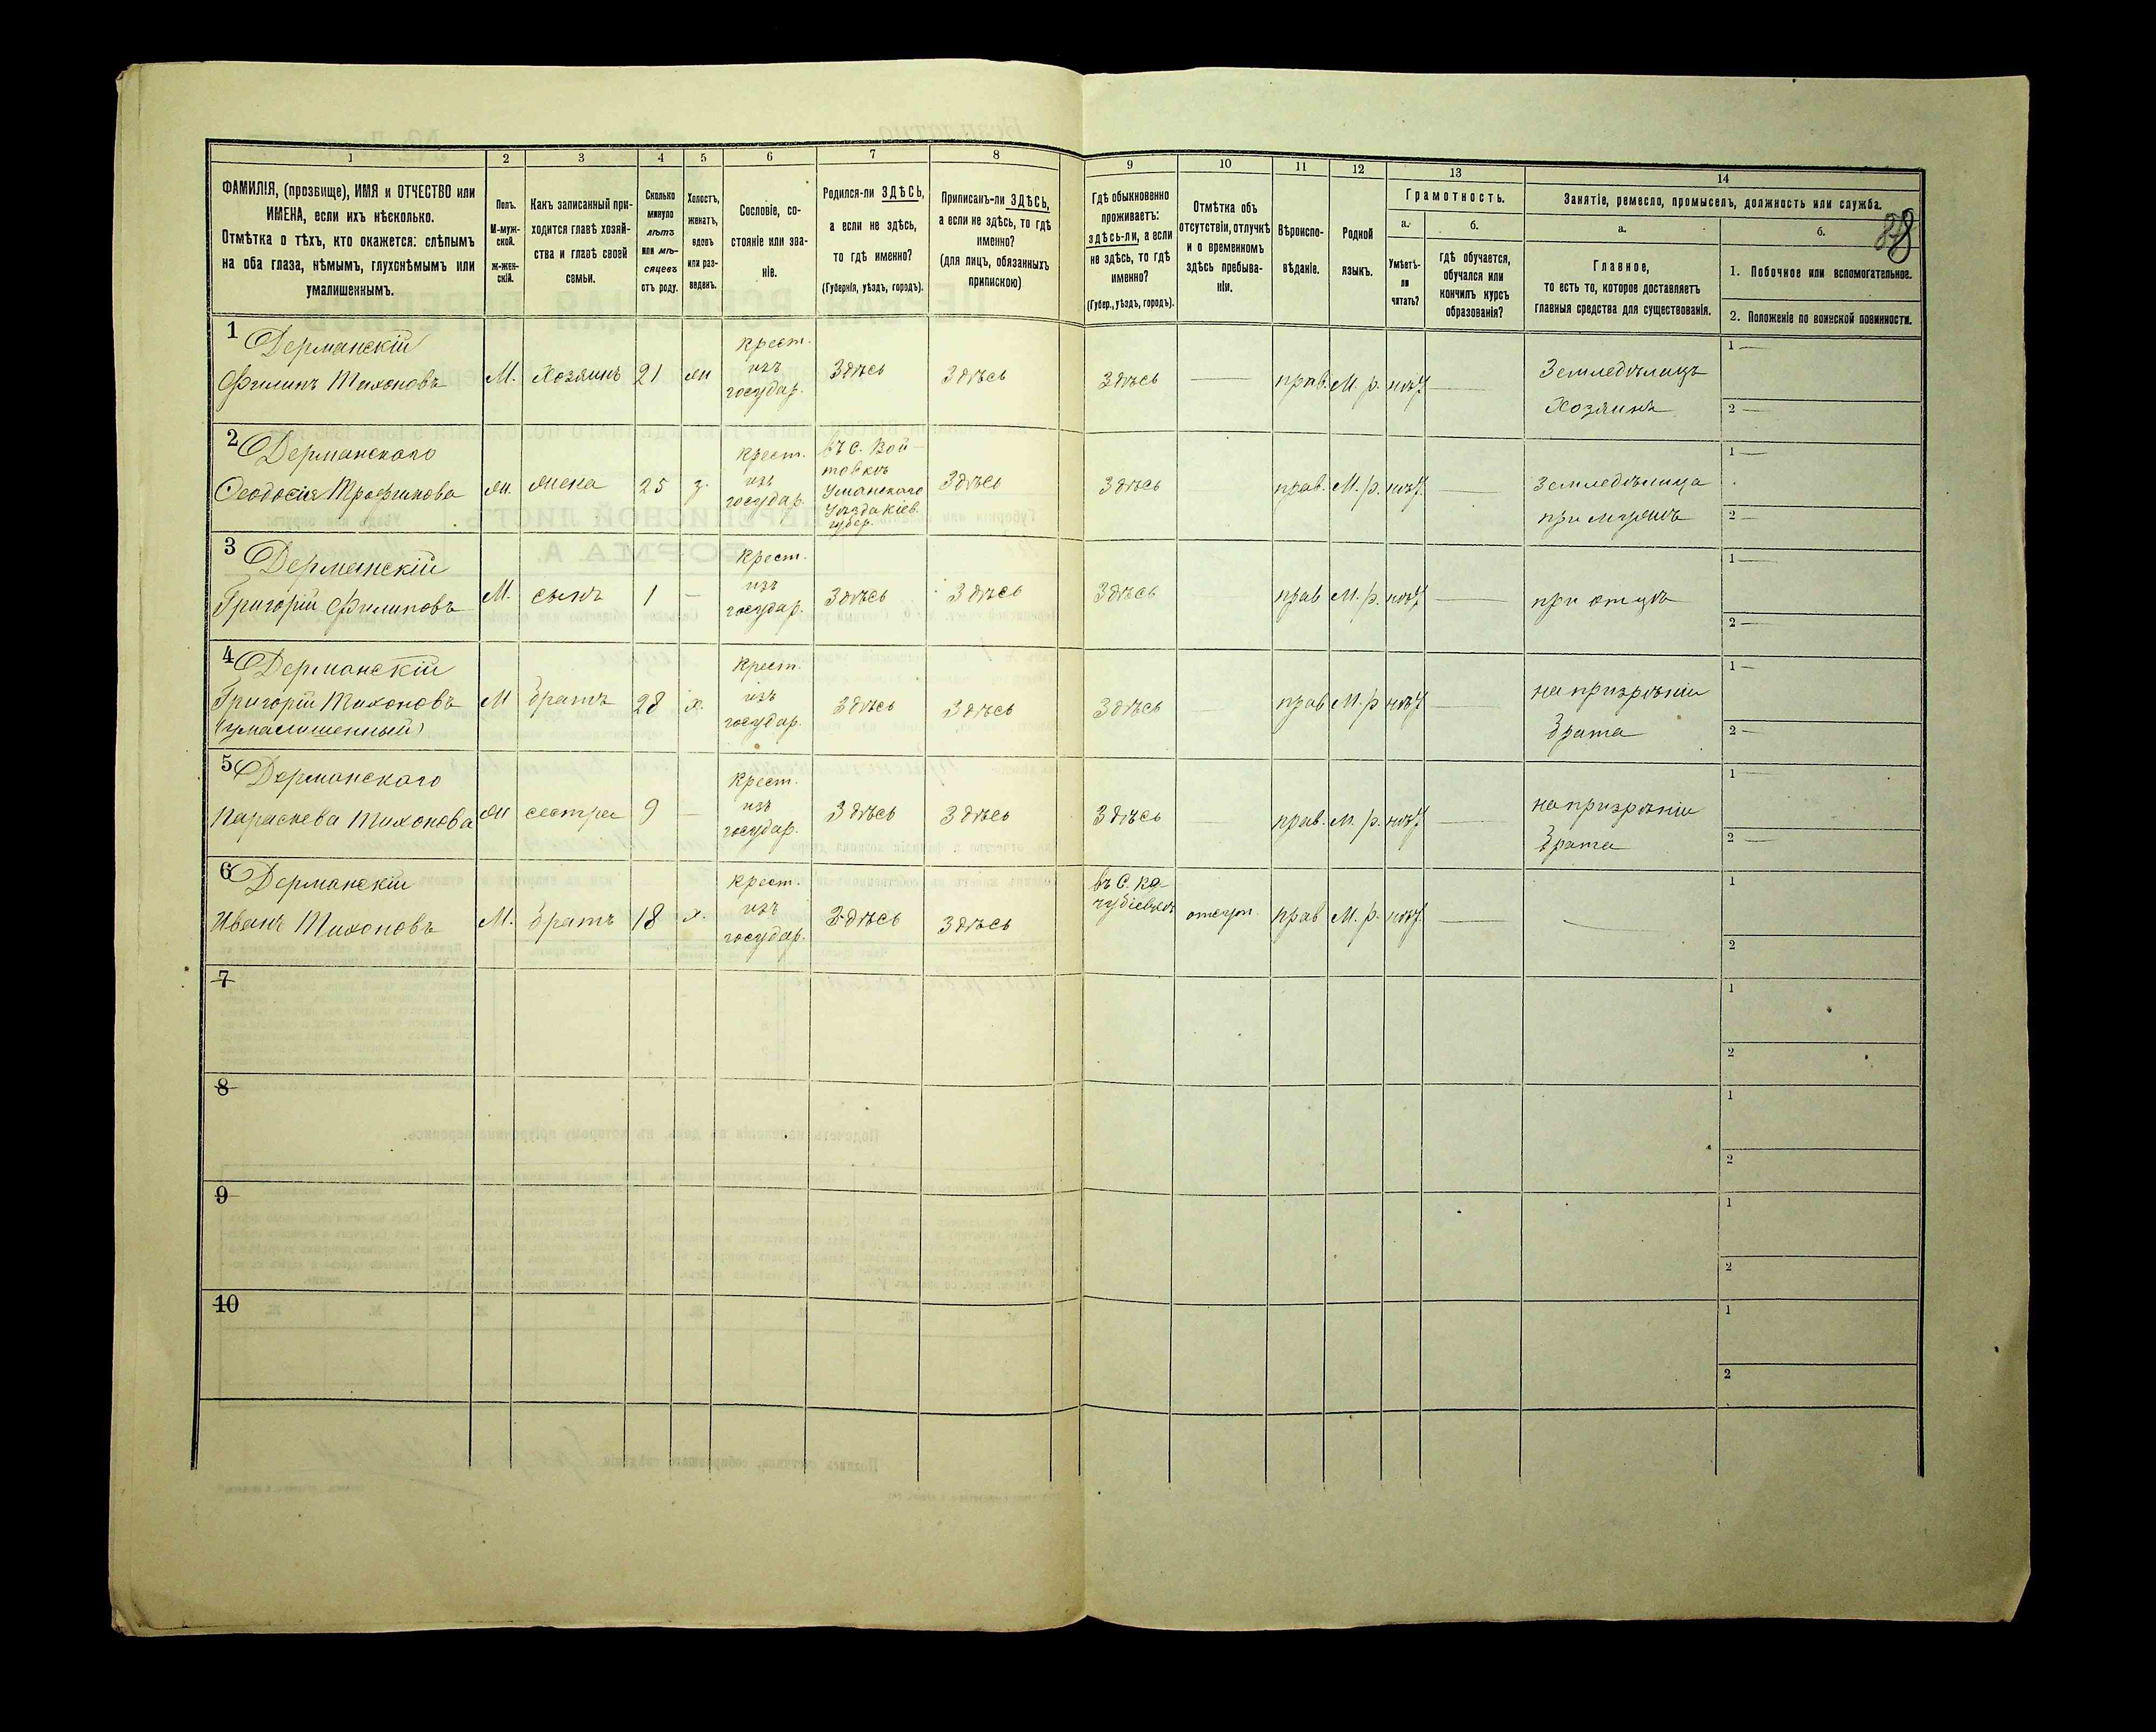 1 2 3 4 5 6 7 8 9 10 11 12 13 14
ФАМИЛІЯ, (прозвище), ИМЯ и ОТЧЕСТВО или
ИМЕНА, если ихъ нѣсколько.
Отмѣтка о тѣхъ, кто окажется: слѣпымъ
на оба глаза, нѣмымъ, глухонѣмымъ или
умалишеннымъ.
Полъ.
М-муж-
ской.
Ж-жен-
скій.
Какъ записанный при-
ходится главѣ хозяй-
ства и главѣ своей
семьи.
Сколько
минуло
лѣтъ
или мѣ-
сяцевъ
отъ роду.
Холостъ,
женатъ,
вдовъ
или раз-
веденъ.
Сословіе, со-
стояніе или зва-
ніе.
Родился-ли ЗДѢСЬ,
а если не здѣсь,
то гдѣ именно?
(Губернія, уѣздъ, городъ).
Приписанъ-ли ЗДѢСЬ,
а если не здѣсь, то гдѣ
именно?
(для лицъ, обязанныхъ
припискою)
Гдѣ обыкновенно
проживаетъ:
здѣсь-ли, а если
не здѣсь, то гдѣ
именно?
(Губер., уѣздъ, городъ).
Отмѣтка объ
отсутствіи, отлучкѣ
и о временномъ
здѣсь пребыва-
ніи.
Вѣроиспо-
вѣданіе.
Родной
языкъ.
Грамотность.
а.
Умѣетъ-
ли
читать?
б.
гдѣ обучается,
обучался или
кончилъ курсъ
образованія?
Занятіе, ремесло, промыселъ, должность или служба.
а.
Главное,
то есть то, которое доставляетъ
главныя средства для существованія.
б.
1. Побочное или вспомогательное.
2. Положеніе по воинской повинности.
1 Дерманскій
Филипъ Тихоновъ
М. Хозяинъ 21 жн
крест.
изъ
государ.
Здѣсь Здѣсь Здѣсь — прав. М. р. нѣт. —
Земледѣлецъ
Хозяинъ
1 —
2 —
2 Дерманского
Феодосія Трофимова
жн. жена 25 з.
крест.
изъ
государ.
въ с. Вой-
товкѣ
Уманского
Уѣзда Кіев.
губер.
Здѣсь Здѣсь прав. М. р. нѣт. —
Земледѣлица
при мужѣ
1 —
2 —
3 Дерманскій
Григорій Филиповъ
М. сынъ 1 —
крест.
изъ
государ.
Здѣсь Здѣсь Здѣсь прав М. р. нѣт. —
при отцѣ
1 —
2 —
4 Дерманскій
Григорій Тихоновъ
(умалишенный)
М братъ 28 х.
крест.
изъ
государ.
Здѣсь Здѣсь Здѣсь — прав М. р нѣт —
на призрѣніи
брата
1 —
2 —
5 Дерманского
Параскева Тихонова
жн сестра 9 —
крест.
изъ
государ.
Здѣсь Здѣсь Здѣсь — прав. М. р. нѣт. —
на призрѣніи
брата
1 —
2 —
6 Дерманскій
Иванъ Тихоновъ
М. братъ 18 х.
крест.
изъ
государ.
Здѣсь Здѣсь
въ с. Ко-
чубіевкѣ
отсут. прав М. р. нѣт. — —
1
2
7
1
2
8
1
2
9
1
2
10
1
2